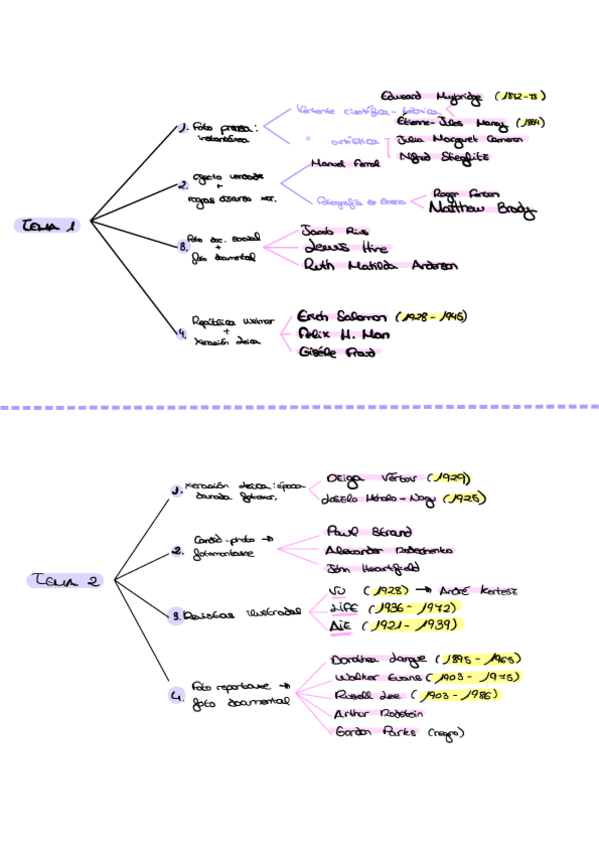 TEMA 1
1. Foto prensa:
instantánea
Vertente científica-técnica
Edward Muybridge (1872-78)
Étienne-Jules Marey (1884)
" artística
Julia Margaret Cameron
Alfred Stieglitz
2. obxecto verdade
+
Manuel Ferrol
Fotografía de Guerra
Roger Fenton
Matthew Brady
3. Foto doc. social
+
foto documental
Jacob Riis
Lewis Hine
Ruth Matilda Anderson
4. República Weimar
+
Xeración Leica
Erich Salomon (1928-1945)
Felix H. Man
Gisèle Freund
TEMA 2
1. Xeración Leica: época
dourada fotoxor.
Dziga Vértov (1929)
László Moholo-Nagy (1925)
2. Candid-photo →
fotomontaxe
Paul Strand
Alexander Rodechenko
John Heartfield
3. Revistas ilustradas
VU (1928) → André Kertész
LIFE (1936-1972)
AIZ (1921-1939)
4. Foto reportaxe →
foto documental
Dorothea Lange (1895-1965)
Walker Evans (1903-1975)
Russell Lee (1903-1986)
Arthur Rodstein
Gordon Parks (negro)